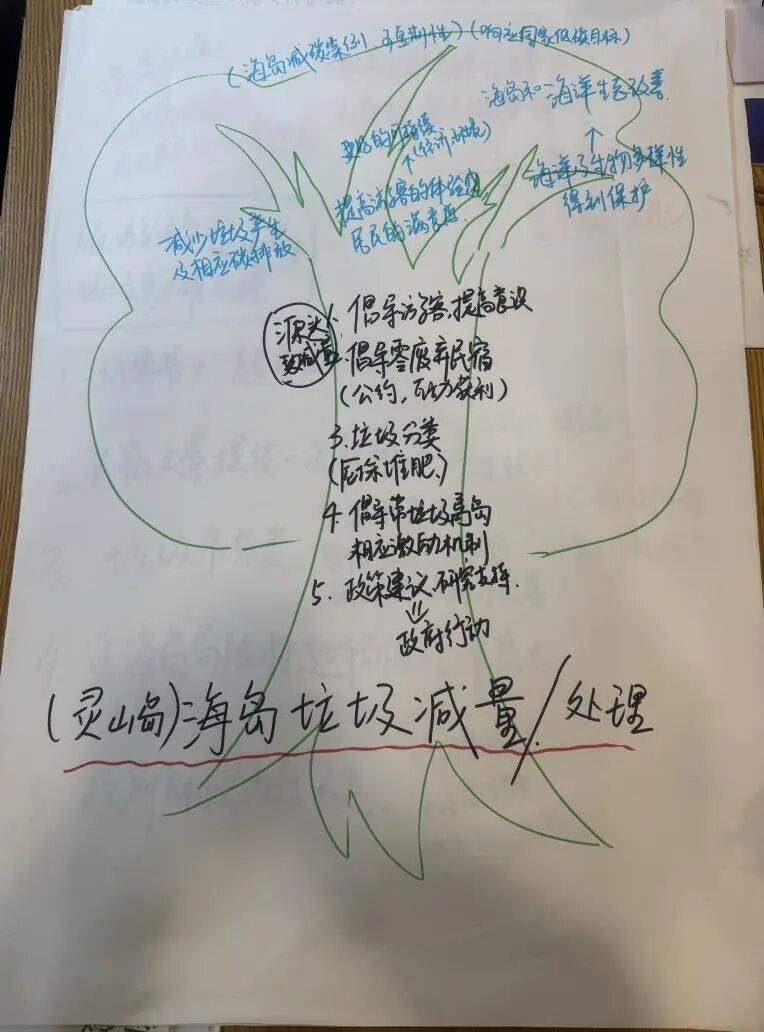 (海岛减碳案例、可复制性)(响应国家低碳目标)
海岛和海洋生态改善
更好的可持续
(经济、环境)
↑
提高游客的体验和
居民的满意度
↑
海洋及生物多样性
得到保护
减少垃圾产生
及相应碳排放
源头
1. 倡导游客,提高意识
2. 倡导零废弃民宿
(公约,互动获利)
3. 垃圾分类
(厨余堆肥)
4. 倡导带垃圾离岛
相应激励机制
5. 政策建议、研究支撑
⇓
政府行动
(灵山岛)海岛垃圾减量/处理